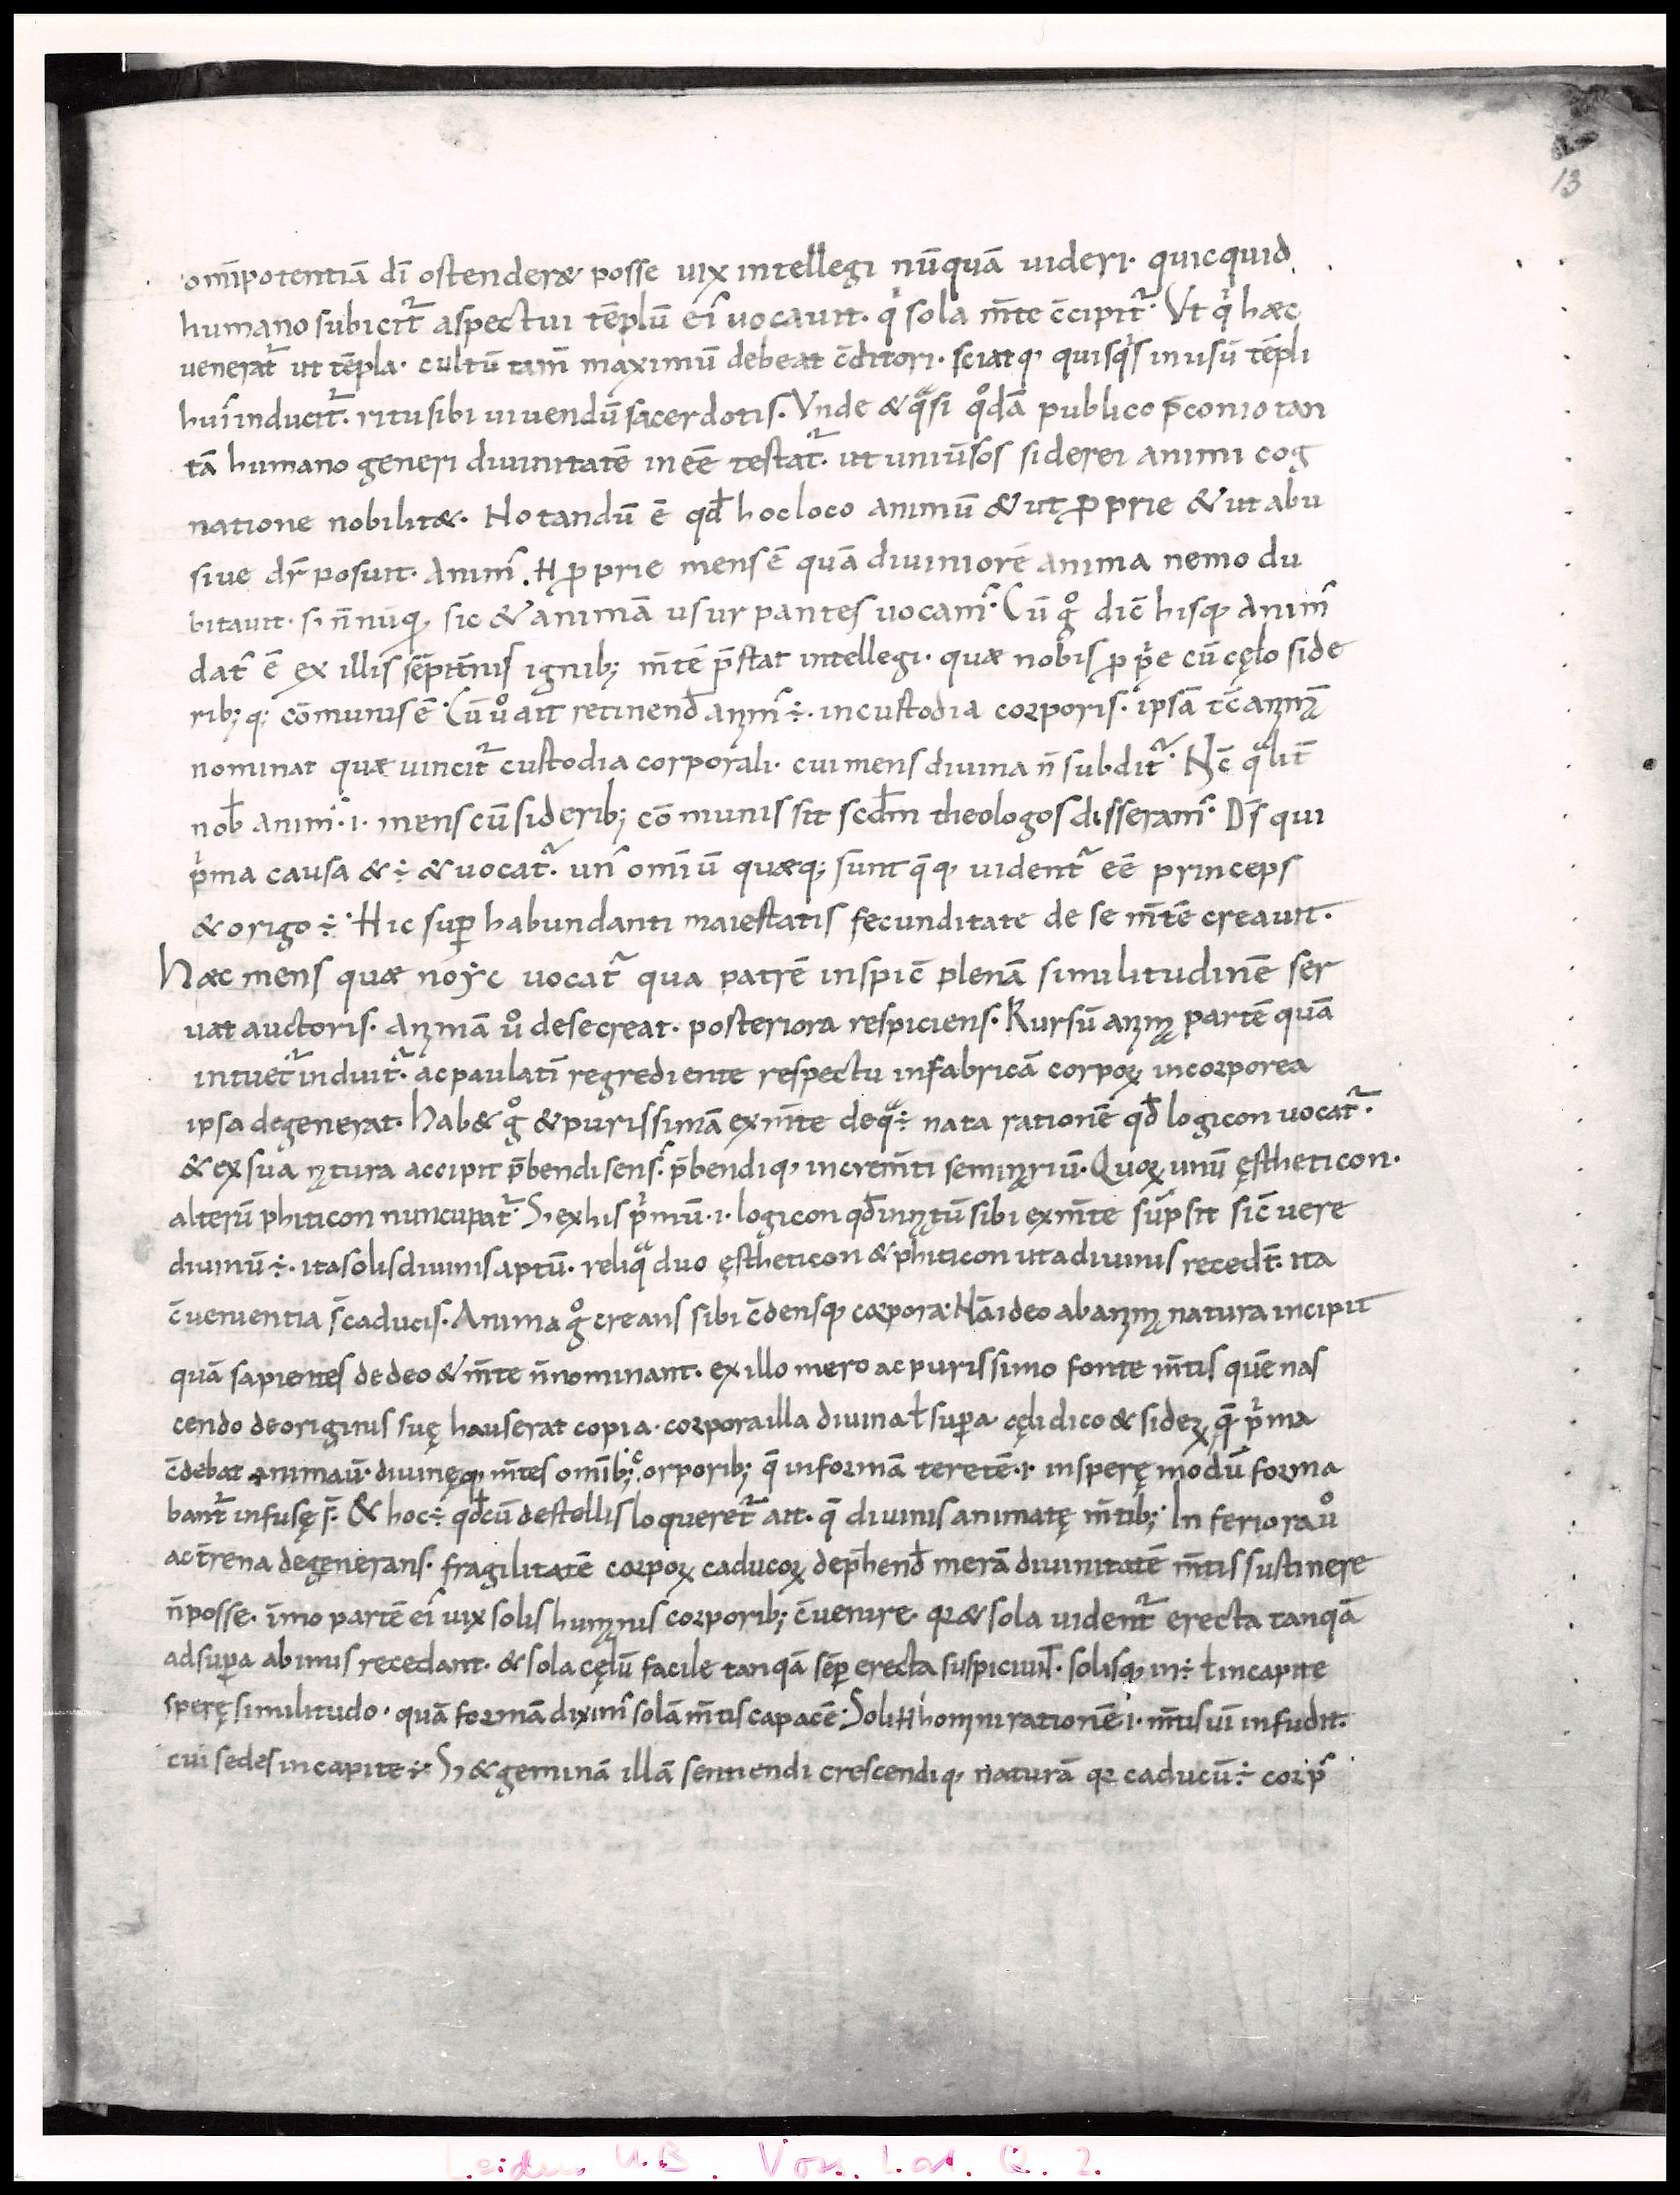 13
omīpotentiā dī ostenderæ posse uix intellegi nūquā uideri· quicquid
humano subicit᷑ aspectui tēplū ei᷒ uocauit· q̇ sola m̄te c̄cipit᷑· Vt q̇ hæc
uenerat᷑ ut tēpla· cultū tam̄ maximū debeat c̄ditori· sciatq, quisq̇s in usū tēpli
hui᷒ inducit᷑· ritu sibi uiuendū sacerdotis· Vnde & qͣsi qͦdā publico p̄conio tan
tā humano generi diuinitatē in eē testat᷑· ut uniūsos siderei animi cog
natione nobilitæ· Notandū ē qd̄ hoc loco animū & ut ꝓprie & ut abu
siue dr̄ posuit· Anim᷒ ·H· ꝓprie mens ē quā diuiniorē anima nemo du
bitauit· s; n̄nūq̄, sic & animā usurpantes uocam᷒· Cū gͦ dic̄ hisq, anim᷒
dat᷒ ē ex illis sēpit̄nis ignib; m̄tē p̄stat intellegi· quæ nobis ꝓpṙe cū cęlo side
rib;q; cōmunis ē· Cū uͦ ait retinend᷒ anim᷒ ÷· in custodia corporis· ipsā tc̄ animā
nominat quæ uincit᷑ custodia corporali· cui mens diuina n̄ subdit᷑· Nc̄ qͣlit̄
nob̄ anim᷒·i· mens cū siderib; cōmunis sit scdm̄ theologos disseram᷒· Ds̄ qui
pṙma causa & ÷ & uocat᷑· un᷒ omīū quæq; sunt q̄q, uident᷑ eē princeps
& origo ÷· Hic suꝑhabundanti maiestatis fecunditate de se m̄tē creauit·
Hæc mens quæ noyc uocat᷑ qua patrē inspic̄ plenā similitudinē ser
uat auctoris· Animā uͦ de se creat· posteriora respiciens· Rursū anima partē quā
intuet᷑ induit᷑· ac paulatī regrediente respectu in fabricā corporꝝ incorporea
ipsa degenerat· Hab& gͦ & purissimā ex m̄te de qͣ ÷ nata rationē qd̄ logicon uocat᷑·
& ex sua natura accipit p̄bendi sens᷒· p̄bendiq, increm̄ti seminariū· Quoꝝ unū ęstheticon·
alterū phiticon nuncupat᷑· S; ex his pṙmū·i· logicon qd̄ innatū sibi ex m̄te sūpsit sic̄ uere
diuinū ÷· ita solis diuinis aptū· reliqͣ duo ęstheticon & phiticon ut a diuinis recedt̄· ita
c̄uenientia s̄ caducis· Anima gͦ creans sibi c̄densq, corpora· Nā ideo ab anima natura incipit
quā sapientes de deo & m̄te n̄nominant· ex illo mero ac purissimo fonte m̄tis quē nas
cendo de originis suę hauserat copia· corpora illa diuina ł suꝑa cęli dico & sideꝝ q̄ pṙma
c̄debat animauit· diuinęq, m̄tes omīb; corporib; q̄ in formā teretē·i· in sperę modū forma
bant᷑ infusę s̄· & hoc ÷ qd̄ cū de stellis loqueret᷑ ait· q̄ diuinis animatę m̄tib;· In feriora uͦ
ac t̄rena degenerans· fragilitatē corporꝝ caducoꝝ dep̄hend̄ merā diuinitatē m̄tis sustinere
n̄ posse· īmo partē ei᷒ uix solis humanis corporib; c̄uenire· qꝛ & sola uident᷑ erecta tanqā
ad suꝑa ab imis recedant· & sola cęlū facile tanqā sēꝑ erecta suspiciunt̄· solisq, in ÷ ł in capite
sperę similitudo· quā formā dixim᷒ solā m̄tis capacē· Soli ·H· homini rationē·i· m̄tis uī infudit·
cui sedes in capite ÷· S; & geminā illā sentiendi crescendiq, naturā qꝛ caducū ÷ corp᷒
Leiden U.B. Vos. Lat. Q. 2.